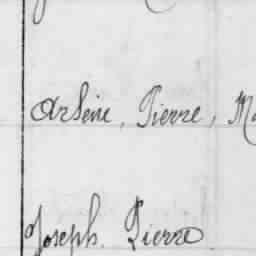 Arsène, Pierre, Ma
Joseph. Pierre